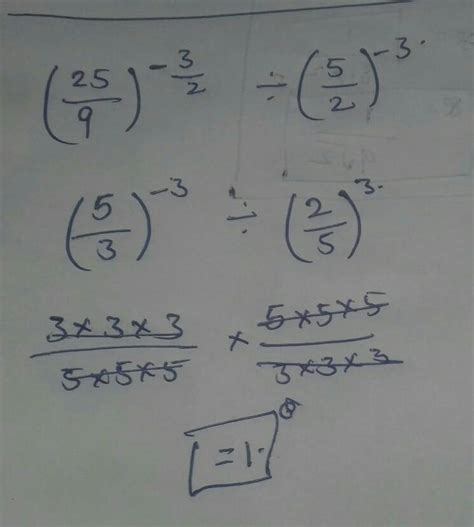 (25/9)^-3/2 ÷ (5/2)^-3.
(5/3)^-3 ÷ (2/5)^3.
3×3×3/5×5×5 × 5×5×5/3×3×3
=1.